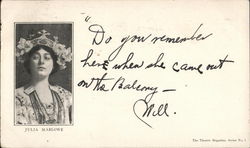 "Do you remember
her when she came out
on the Balcony —
Will.
JULIA MARLOWE
The Theatre Magazine, Series No. 1